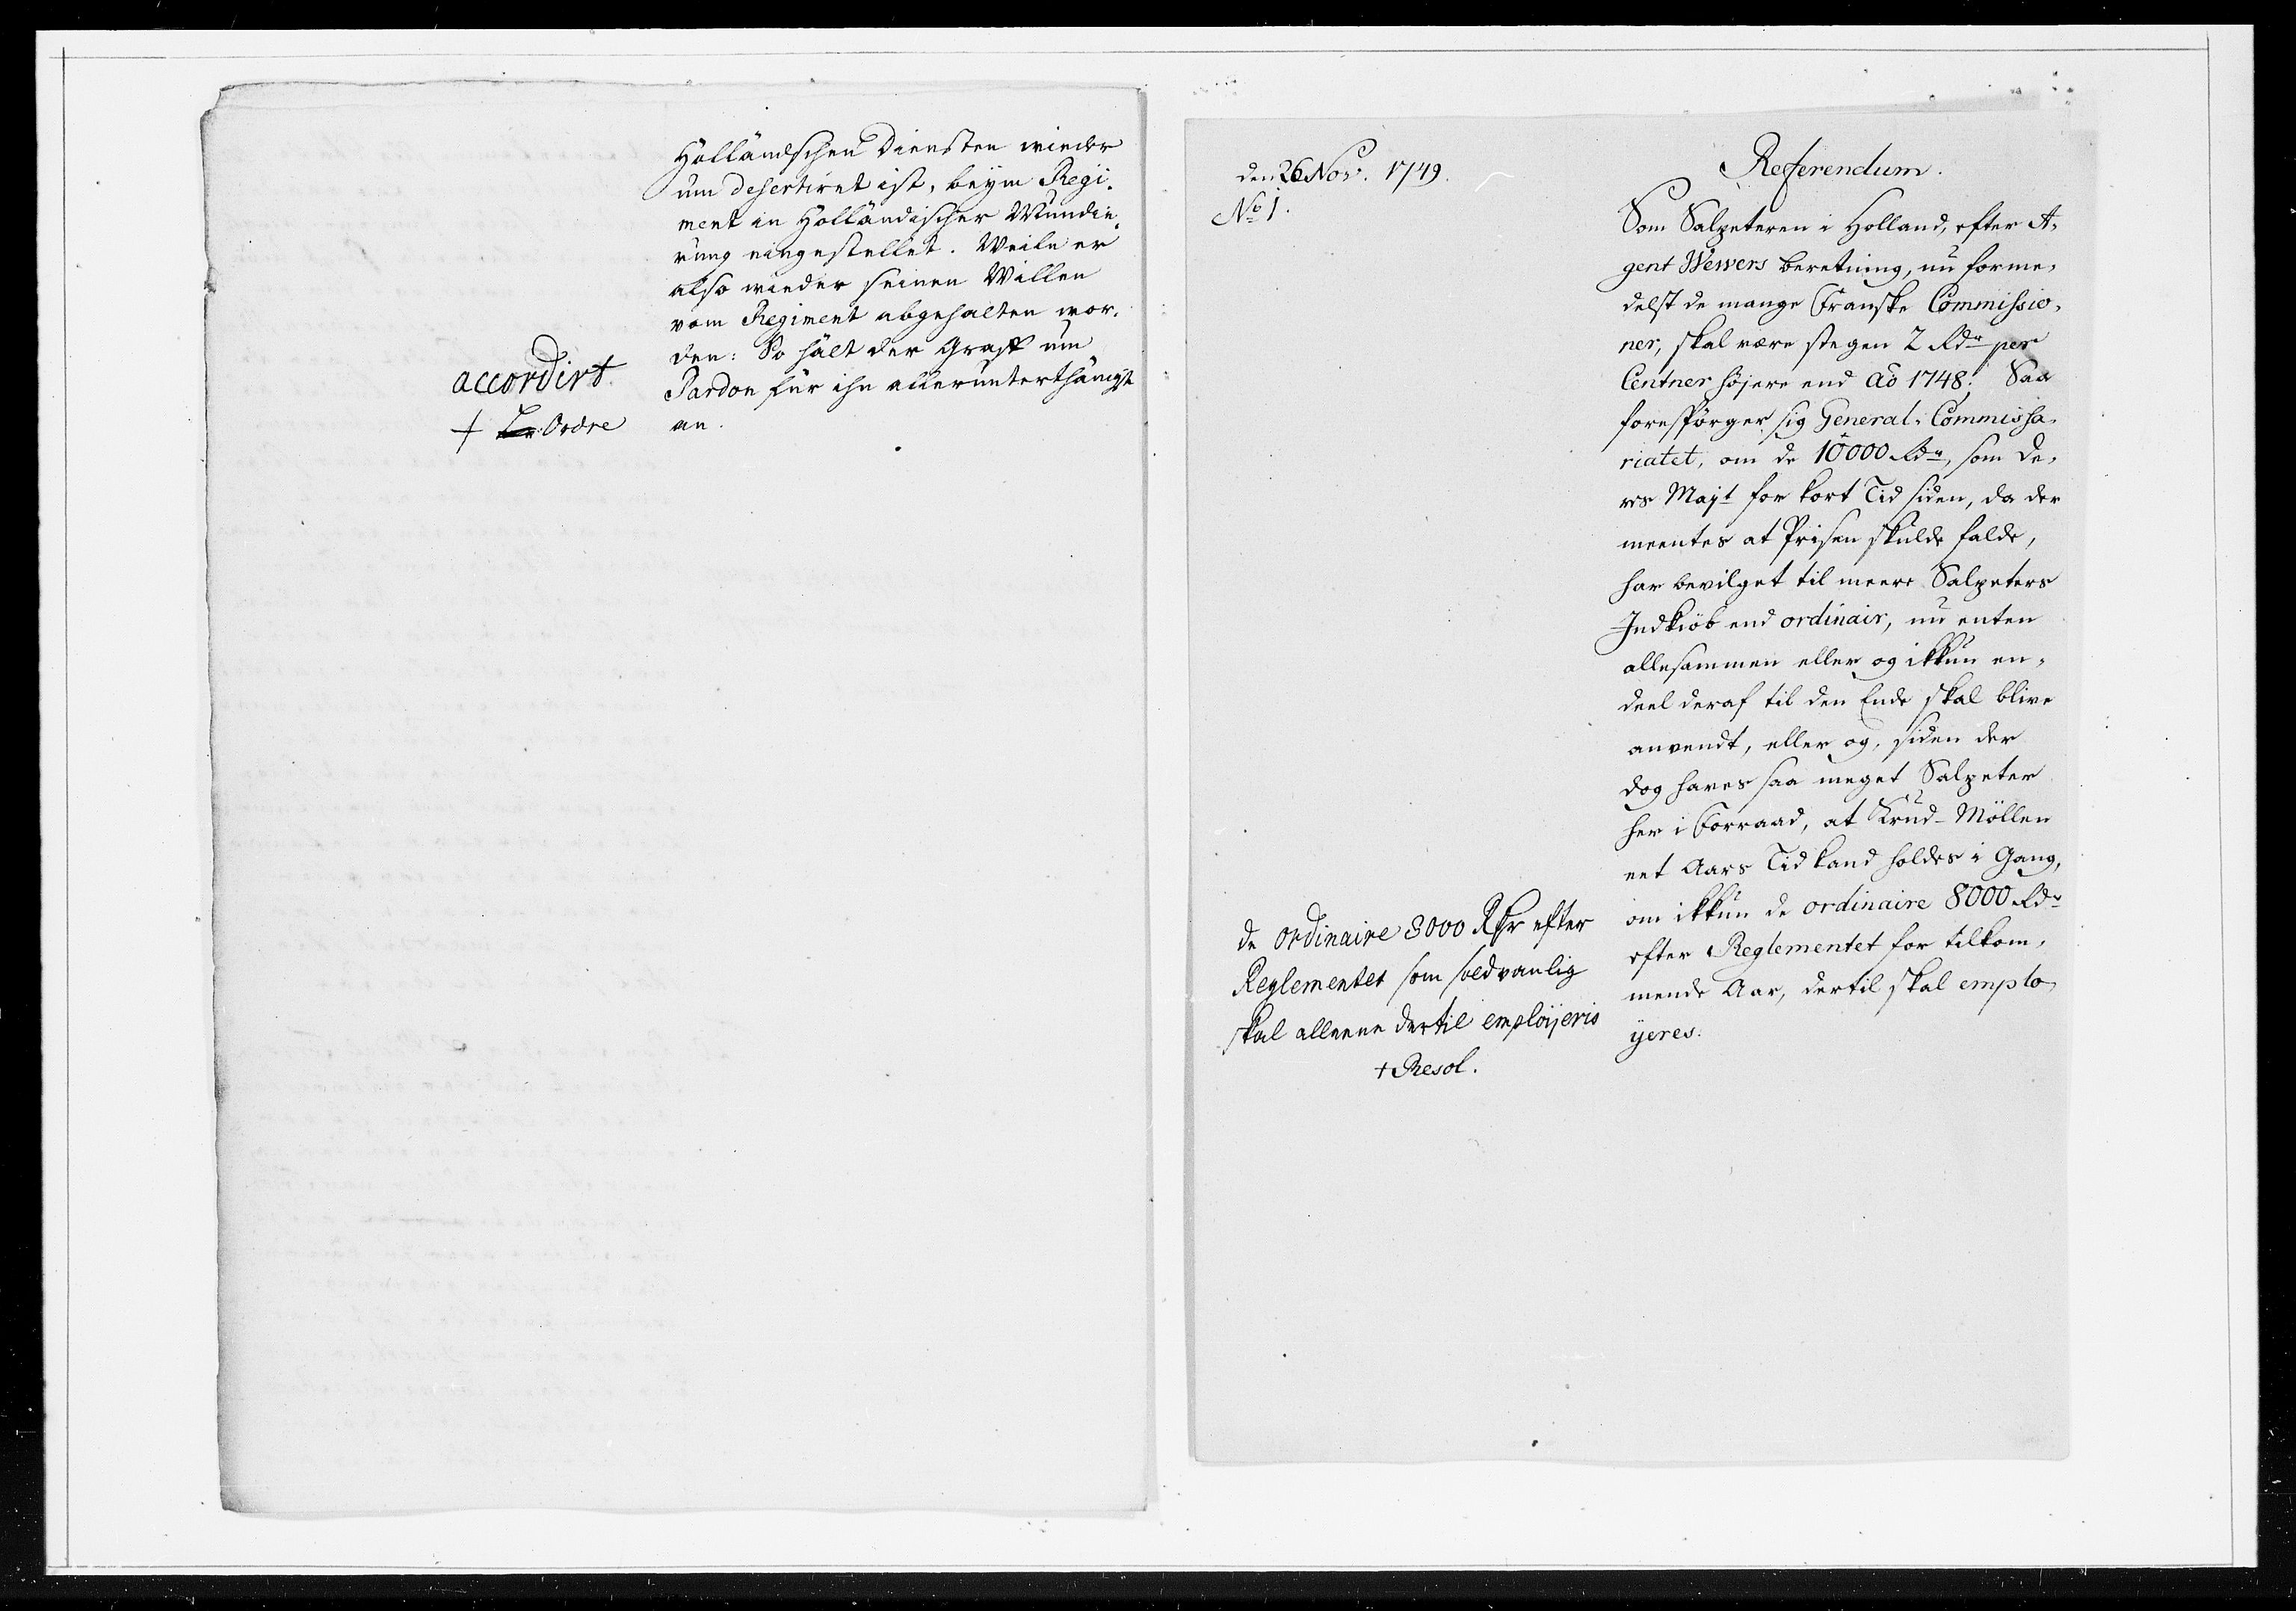 Holländschen Diensten wieder
um desertiret ist, beÿm Regi-
ment in Holländischer Mundie-
rung eingestellet. Weile er
also wieder seinen Willen
vom Regiment abgehalten wor-
den: So hält der Graff um
Pardon für ihn allerunterthänigst
an.
accordirt
+ Ordre
den 26 Nov. 1749.
No 1.
Referendum.
Som Salpeteren i Holland, efter A-
gent Wewers beretning, nu forme-
delst de mange Franske Commissio-
ner, skal være stegen 2 Rdr per
Centner höjere end Ao 1748. Saa
forespörger sig General-Commissa-
riatet, om de 10000 Rdr, som De-
res Majt for kort Tid siden, da der
meentes at Prisen skulde falde,
har bevilget til meere Salpeters
Indkiöb end ordinair, nu enten
allesammen eller og ikkun en-
deel deraf til den Ende skal blive
anvendt, eller og, siden der
dog haves saa meget Salpeter
her i Forraad, at Krud-Möllen
eet Aars Tid kand holdes i Gang,
om ikkun de ordinaire 8000 Rdr
efter Reglementet for tilkom-
mende Aar, dertil skal emplo-
ÿeres.
de ordinaire 8000 Rdr efter
Reglementet som sædvanlig
skal alleene dertil emploÿeris
+ Resol.